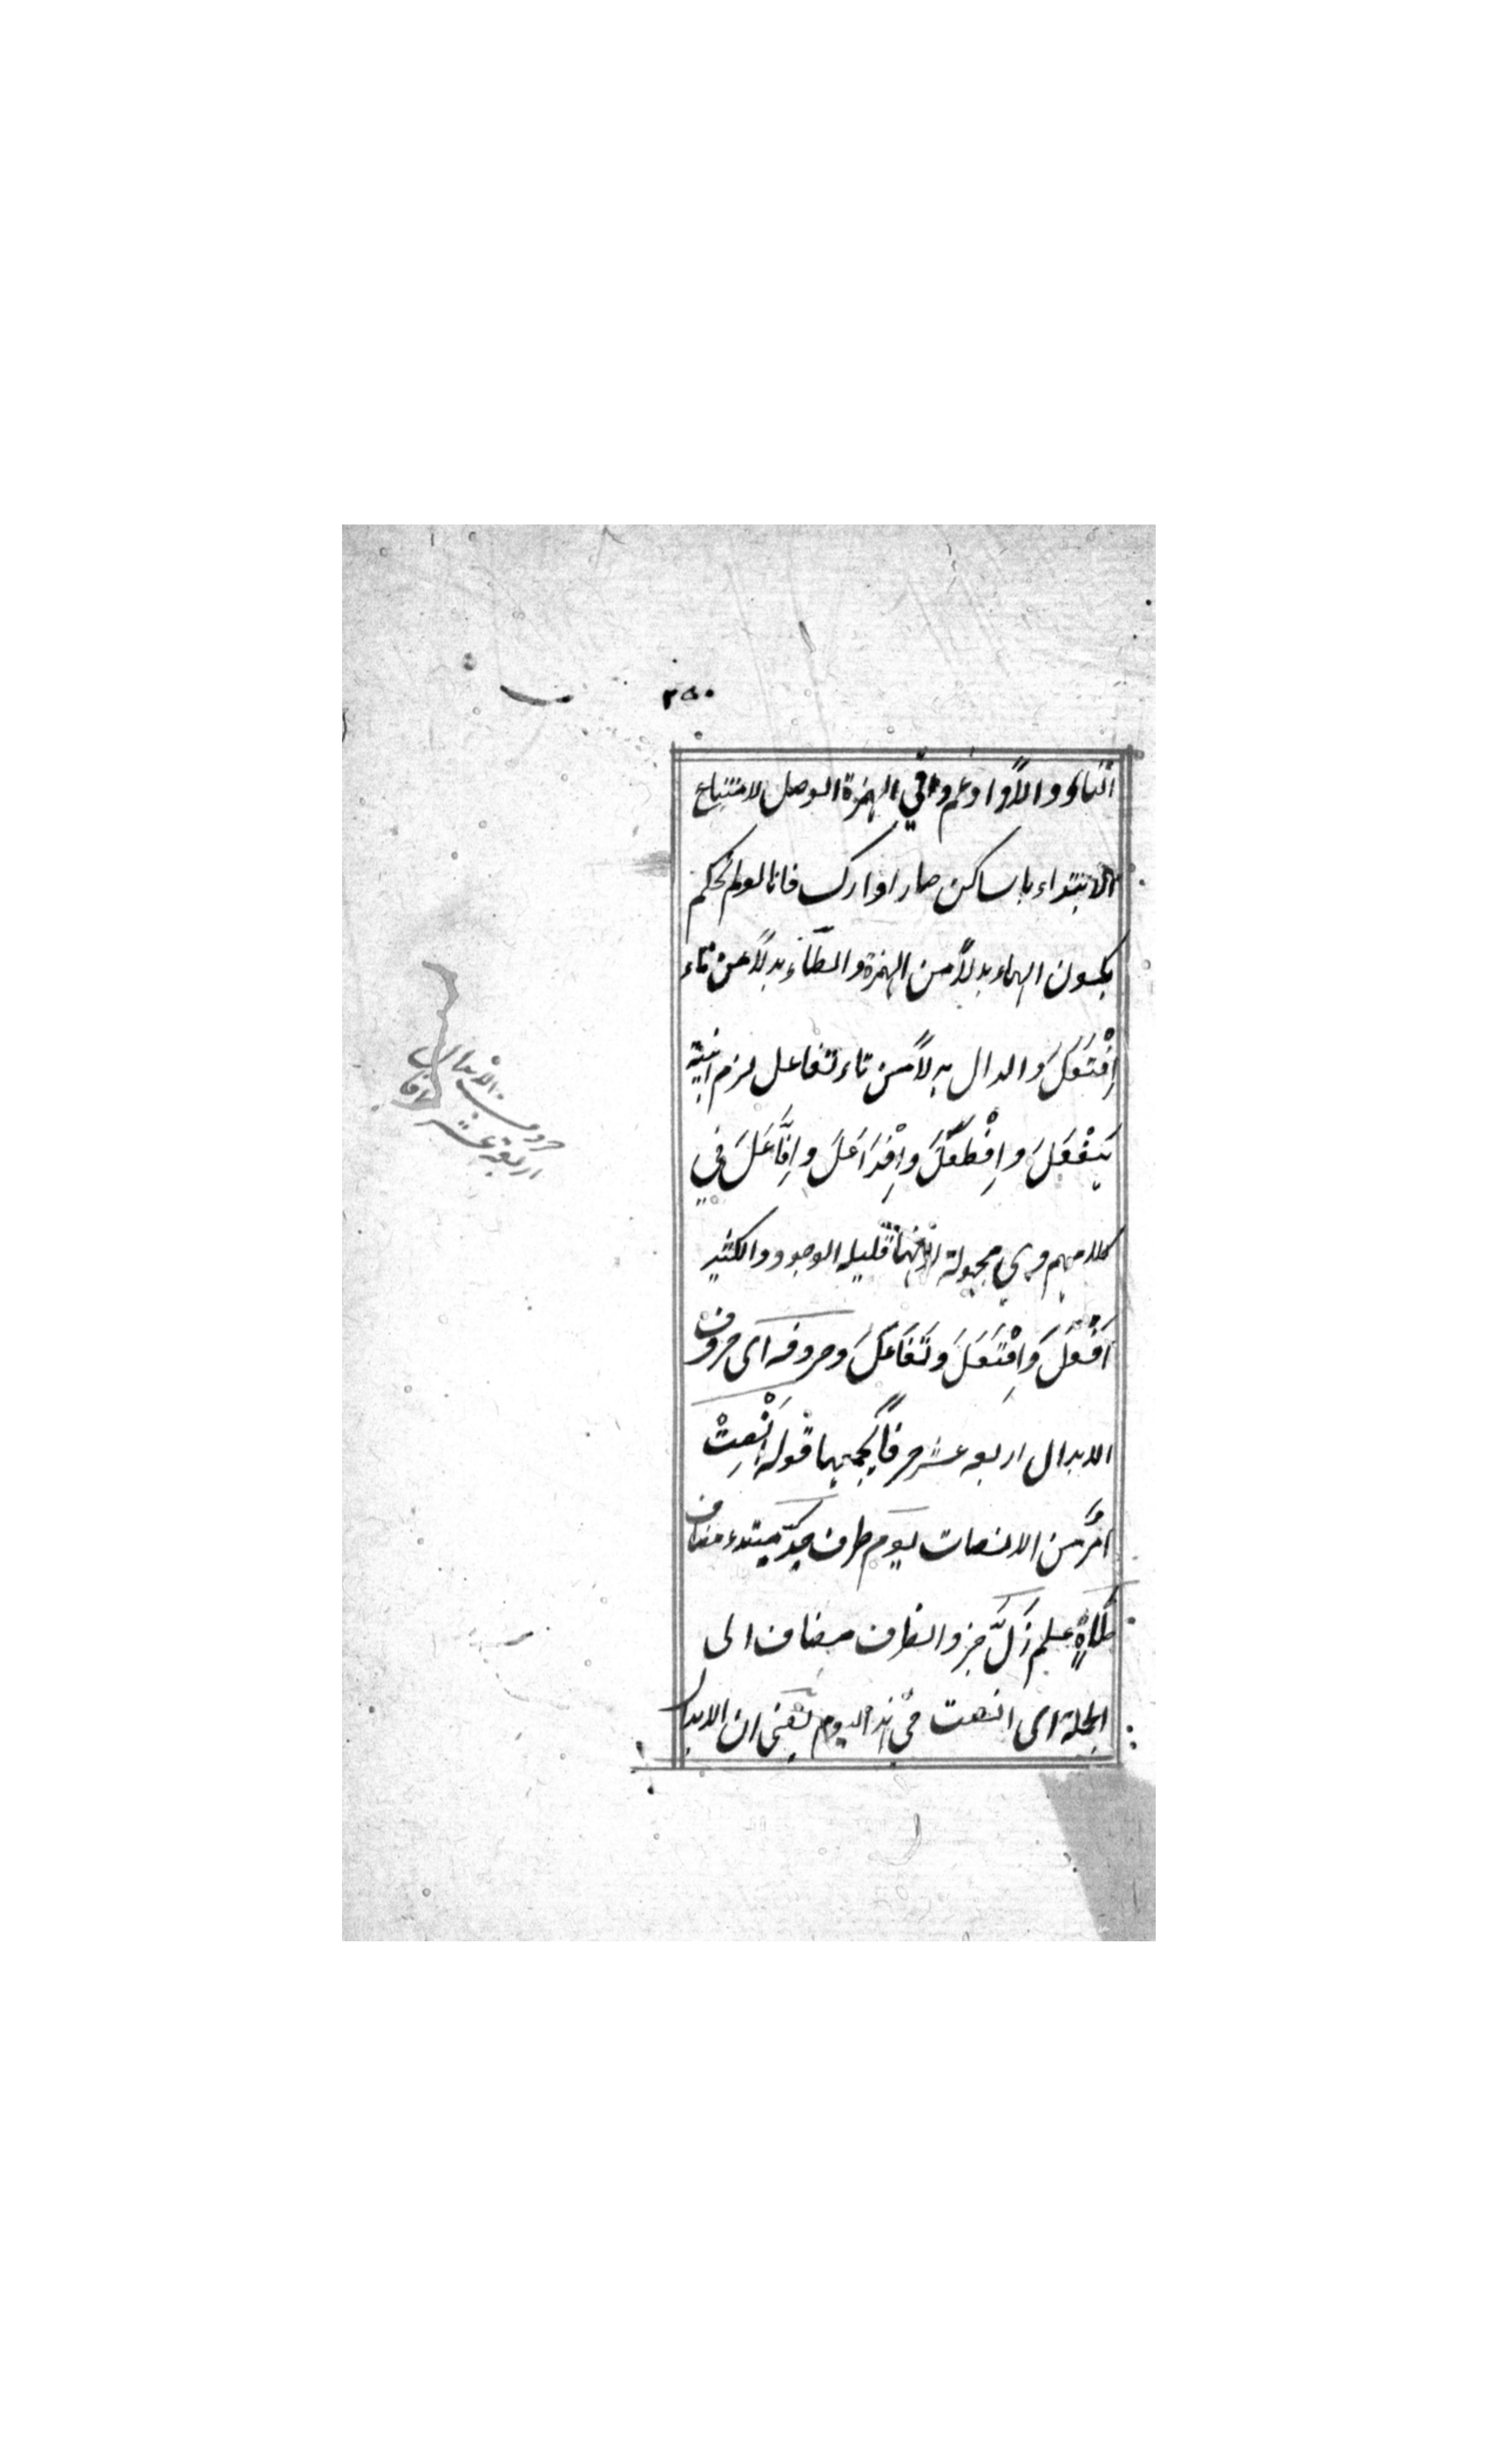 ٢٥٠
الثاني والاول ادغم و في الهمزة الوصل لامتناع
الابتداء بالساكن صار ادارك فانا لو لم نحكم
بكون الهاء بدلاً من الهمزة والطاء بدلاً من تاء
اِفْتَعَلَ والدال بدلاً من تاء تفاعل لزم ابنية
يَهَفْعَلَ واِفْطَعَلَ واِفْدَاعَلَ واِفَّاعَلَ في
كلامهم وهي مجهولة قليله الوجود والكثير
اَفْعَلَ وَاِفْتَعَلَ وتَفَاعَلَ وحروفه اى حروف
الابدال اربعه عشر حرفاً يجمعها قوله اَنْصِتْ
امرٌ من الانصات يومَ ظرف جدّ مبتدء مضاف
طَاهٍ علم زَلَّ خبر والظرف مضاف الى
الجملة اى انصت في هذا اليوم يعنى ان الابدال
حروف الابدال
اربعة عشر حرفا